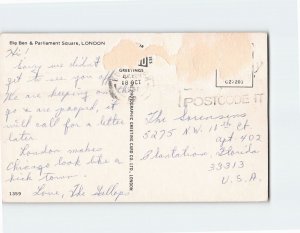 Big Ben & Parliament Square, LONDON
Hi!
Sorry we didn't
get to see you off.
We are keeping on
go & are pooped, it
will call for a letter
later.
London makes
Chicago look like a
hick town.
Love, The Gallops
1359
GREETINGS
PHOTOGRAPHIC GREETING CARD CO. LTD., LONDON
18 OCT
POSTCODE IT
The Sorensens
5875 N.W. 11th Ct.
apt 402
Plantation, Florida
33313
U.S.A.